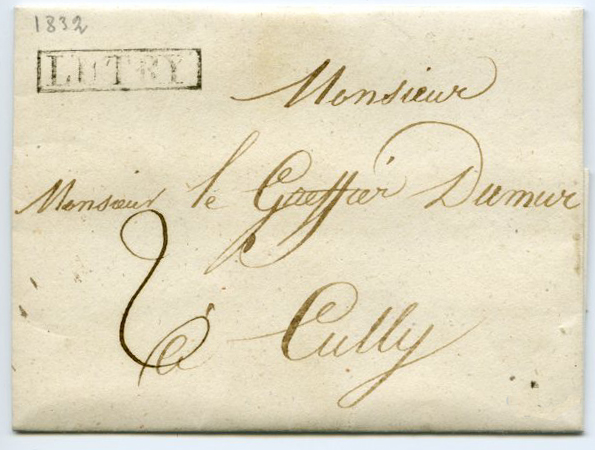 1832
LUTRY
Monsieur
Monsieur le Greffier Dumur
2
à Cully